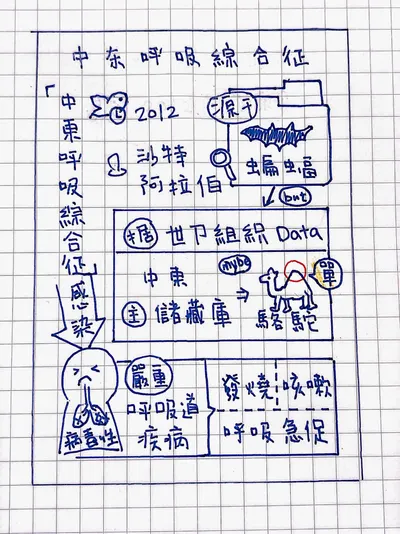 中东呼吸綜合征
「中東呼吸綜合征感染
2012
沙特
阿拉伯
源于
蝙蝠
but
據世卫組织 Data
中東
主 儲藏庫
mybe
單
駱駝
病毒性
嚴重
呼吸道
疾病
發燒 咳嗽
呼吸急促